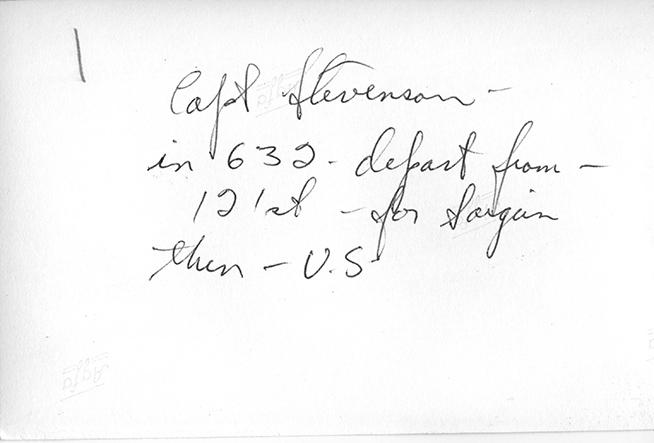 1
Capt Stevenson -
in 632 - depart from -
121st - for Saigon
then - U.S
Agfa